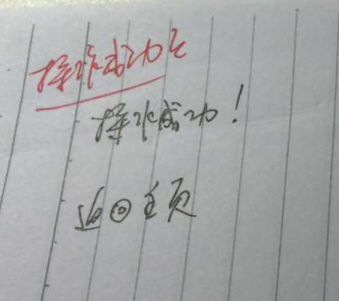 操作成功
操作成功!
返回主页